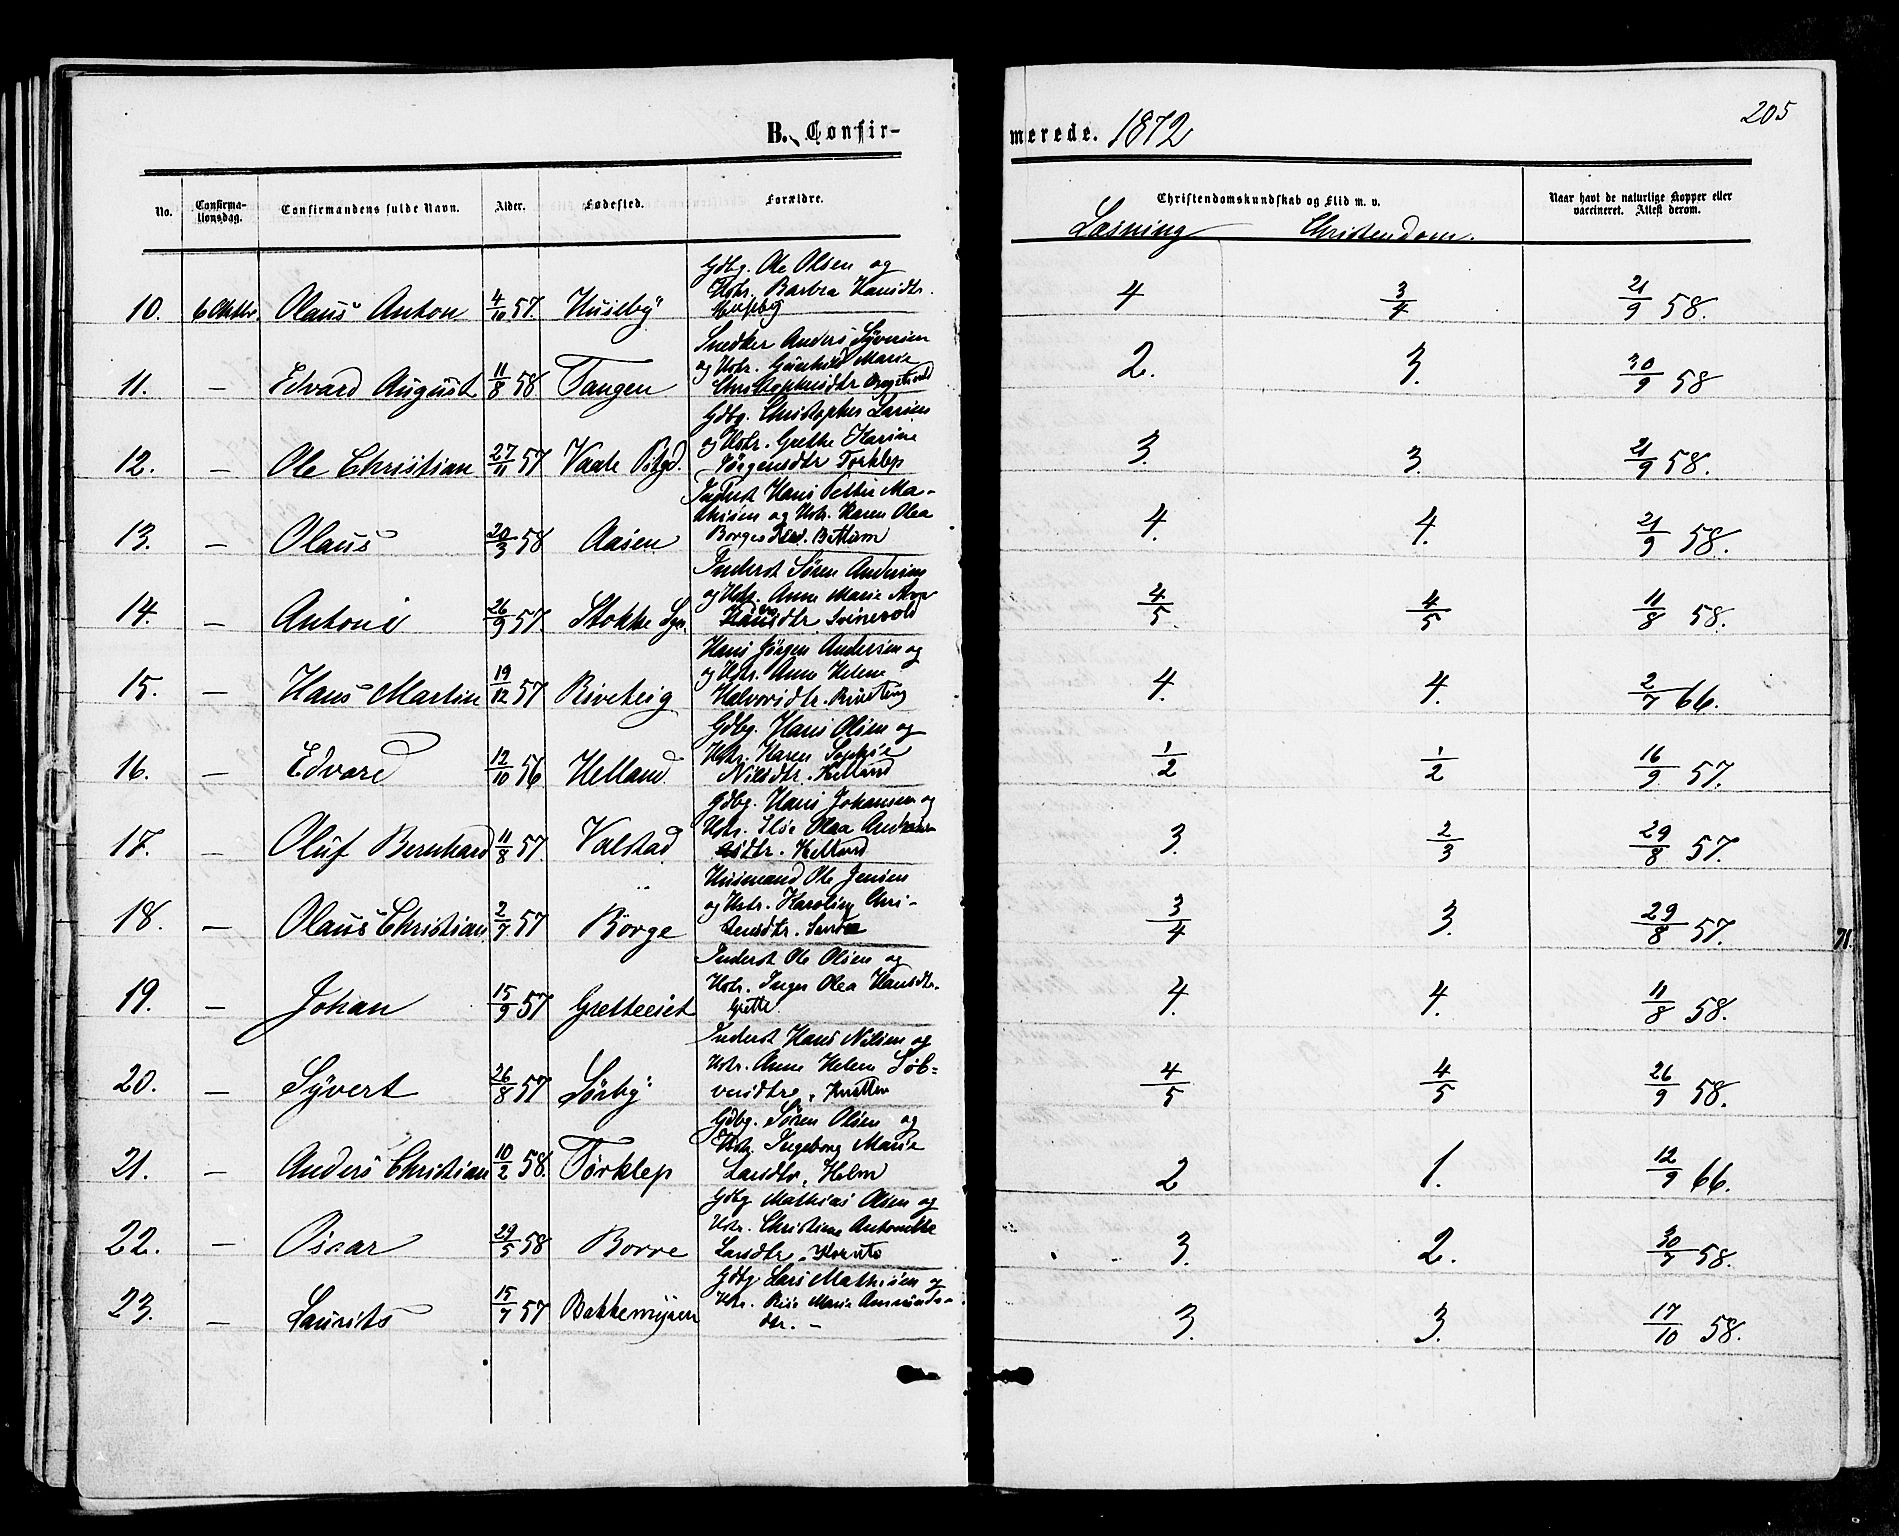 205
B. Confir-
merede. 1872
No.
Confirma-
tionsdag.
Confirmandens fulde Navn.
Alder.
Fødested.
Forældre.
Christendomskundskab og Flid m. v.
Naar havt de naturlige Kopper eller
vaccineret. Attest derom.
Læsning Christendom.
Gdbg. Ole Olsen og
10. 6 Oktbr. Olaus Anton 4/10 57. Huseby Hstr. Barbra Hansdtr. 4 3/4 21/9 58.
Huseby
Snedker Anders Syversen
og Hstr. Gunhild Marie
11. — Edvard August 11/8 58. Tangen Christophersdtr 2. 3. 30/9 58
Gdbg. Christopher Larsen
og Hstr. Grethe Karine
12. — Ole Christian 27/11 57 Vaale Jørgensdtr Torklep 3. 3. 21/9 58.
Inderst Hans Petter Ma-
thisen og Hstr. Karen Olea
13. — Olaus 20/3 58 Aasen 4. 4. 21/9 58.
Inderst Søren Andersen
og Hstr. Anne Marie
14. — Antoni 26/9 57. Stokke Sgn. Hansdtr. Svinevold 4/5 4/5 11/8 58.
Hans Jørgen Andersen og
og Hstr. Anne Helene
15. — Hans Martin 19/12 57 Riveteig Halvorsdtr. 4. 4. 2/7 66.
Gdbg. Hans Olsen og
Hstr. Karen Sophie
16. — Edvard 12/10 56 Helland Nilsdtr. Helland 1/2 1/2 16/9 57.
Gdbg. Hans Johansen og
Hstr. Ilse Olea
17. — Oluf Bernhard 11/8 57. Valstad Helland 3. 2/3 29/8 57.
Husmand Ole Jensen
og Hstr. Karoline Chri-
18. — Olaus Christian 2/7 57 Borge stensdtr. Sande 3/4 3. 29/8 57.
71.
Inderst Ole Olsen og
Hstr. Inger Olea Hansdtr.
19. — Johan 15/9 57 Gretteeiet Grette 4. 4. 11/8 58.
Inderst Hans Nilsen og
Hstr. Anne Helene Søb-
20. — Syvert 26/8 57 Sørby 4/5 4/5 26/9 58.
Gdbg. Søren Olsen og
Hstr. Ingeborg Marie
21. — Anders Christian 10/2 58. Tørklep Larsdtr. Holm 2 1. 12/9 66.
Gdbg Mathias Olsen og
Hstr. Christine Antonette
22. — Oscar 29/5 58 Borre Larsdtr. 3. 2. 30/7 58.
Gdbg Lars Mathisen og
Hstr. Marie Amunds-
23. — Laurits 15/7 57 Bakkemyren dtr. — 3. 3. 17/10 58.